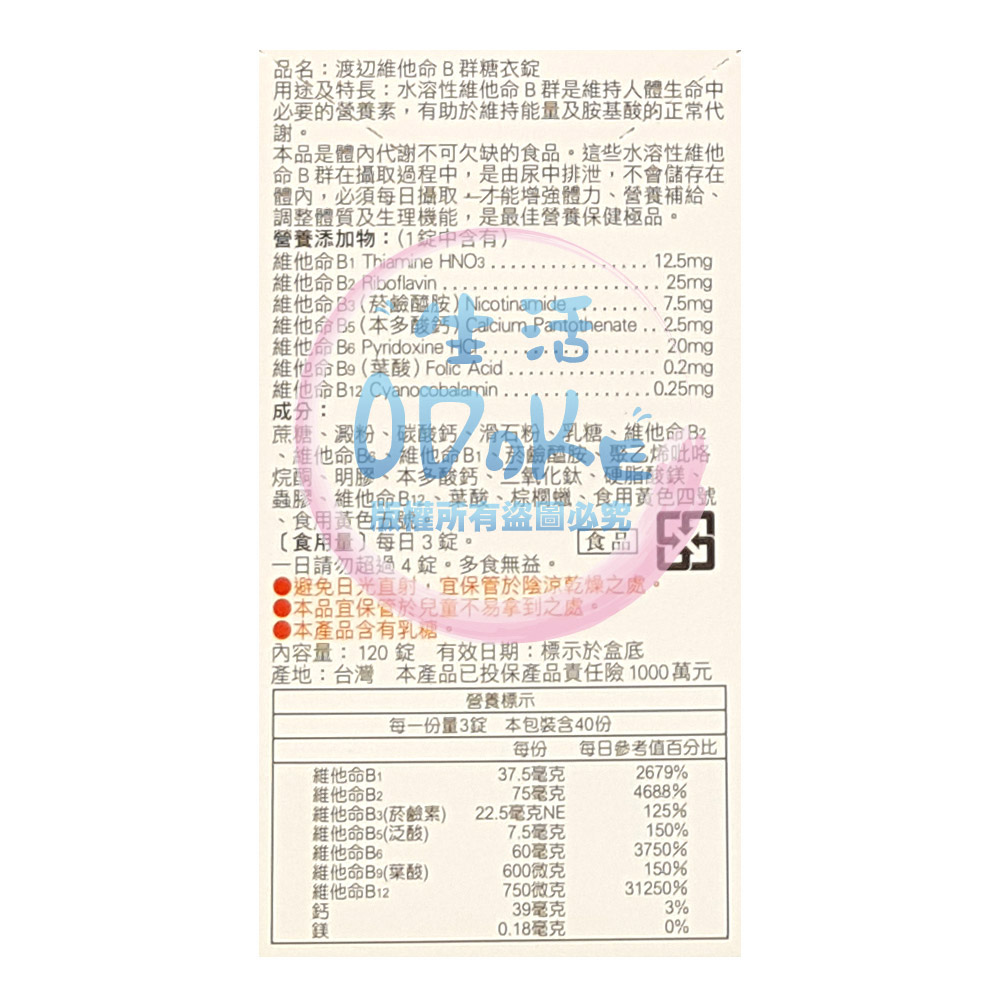 品名：渡辺維他命B群糖衣錠
用途及特長：水溶性維他命B群是維持人體生命中
必要的營養素，有助於維持能量及胺基酸的正常代
謝。
本品是體內代謝不可欠缺的食品。這些水溶性維他
命B群在攝取過程中，是由尿中排泄，不會儲存在
體內，必須每日攝取，才能增強體力、營養補給、
調整體質及生理機能，是最佳營養保健極品。
營養添加物：(1錠中含有)
維他命B1 Thiamine HNO3 ................ 12.5mg
維他命B2 Riboflavin ...................... 25mg
維他命B3 (菸鹼醯胺) Nicotinamide ......... 7.5mg
維他命B5 (本多酸鈣) Calcium Pantothenate .. 2.5mg
維他命B6 Pyridoxine HCl ................. 20mg
維他命B9 (葉酸) Folic Acid ............... 0.2mg
維他命B12 Cyanocobalamin ............... 0.25mg
成分：
蔗糖、澱粉、碳酸鈣、滑石粉、乳糖、維他命B2
、維他命B6、維他命B1、菸鹼醯胺、聚乙烯吡咯
烷酮、明膠、本多酸鈣、二氧化鈦、硬脂酸鎂、
蟲膠、維他命B12、葉酸、棕櫚蠟、食用黃色四號
、食用黃色五號。
〔食用量〕每日3錠。
食品
一日請勿超過4錠。多食無益。
●避免日光直射，宜保管於陰涼乾燥之處。
●本品宜保管於兒童不易拿到之處。
●本產品含有乳糖。
內容量：120錠 有效日期：標示於盒底
產地：台灣 本產品已投保產品責任險1000萬元
營養標示
每一份量3錠 本包裝含40份
每份 每日參考值百分比
維他命B1 37.5毫克 2679%
維他命B2 75毫克 4688%
維他命B3(菸鹼素) 22.5毫克NE 125%
維他命B5(泛酸) 7.5毫克 150%
維他命B6 60毫克 3750%
維他命B9(葉酸) 600微克 150%
維他命B12 750微克 31250%
鈣 39毫克 3%
鎂 0.18毫克 0%
生活
ODOKE
版權所有盜圖必究